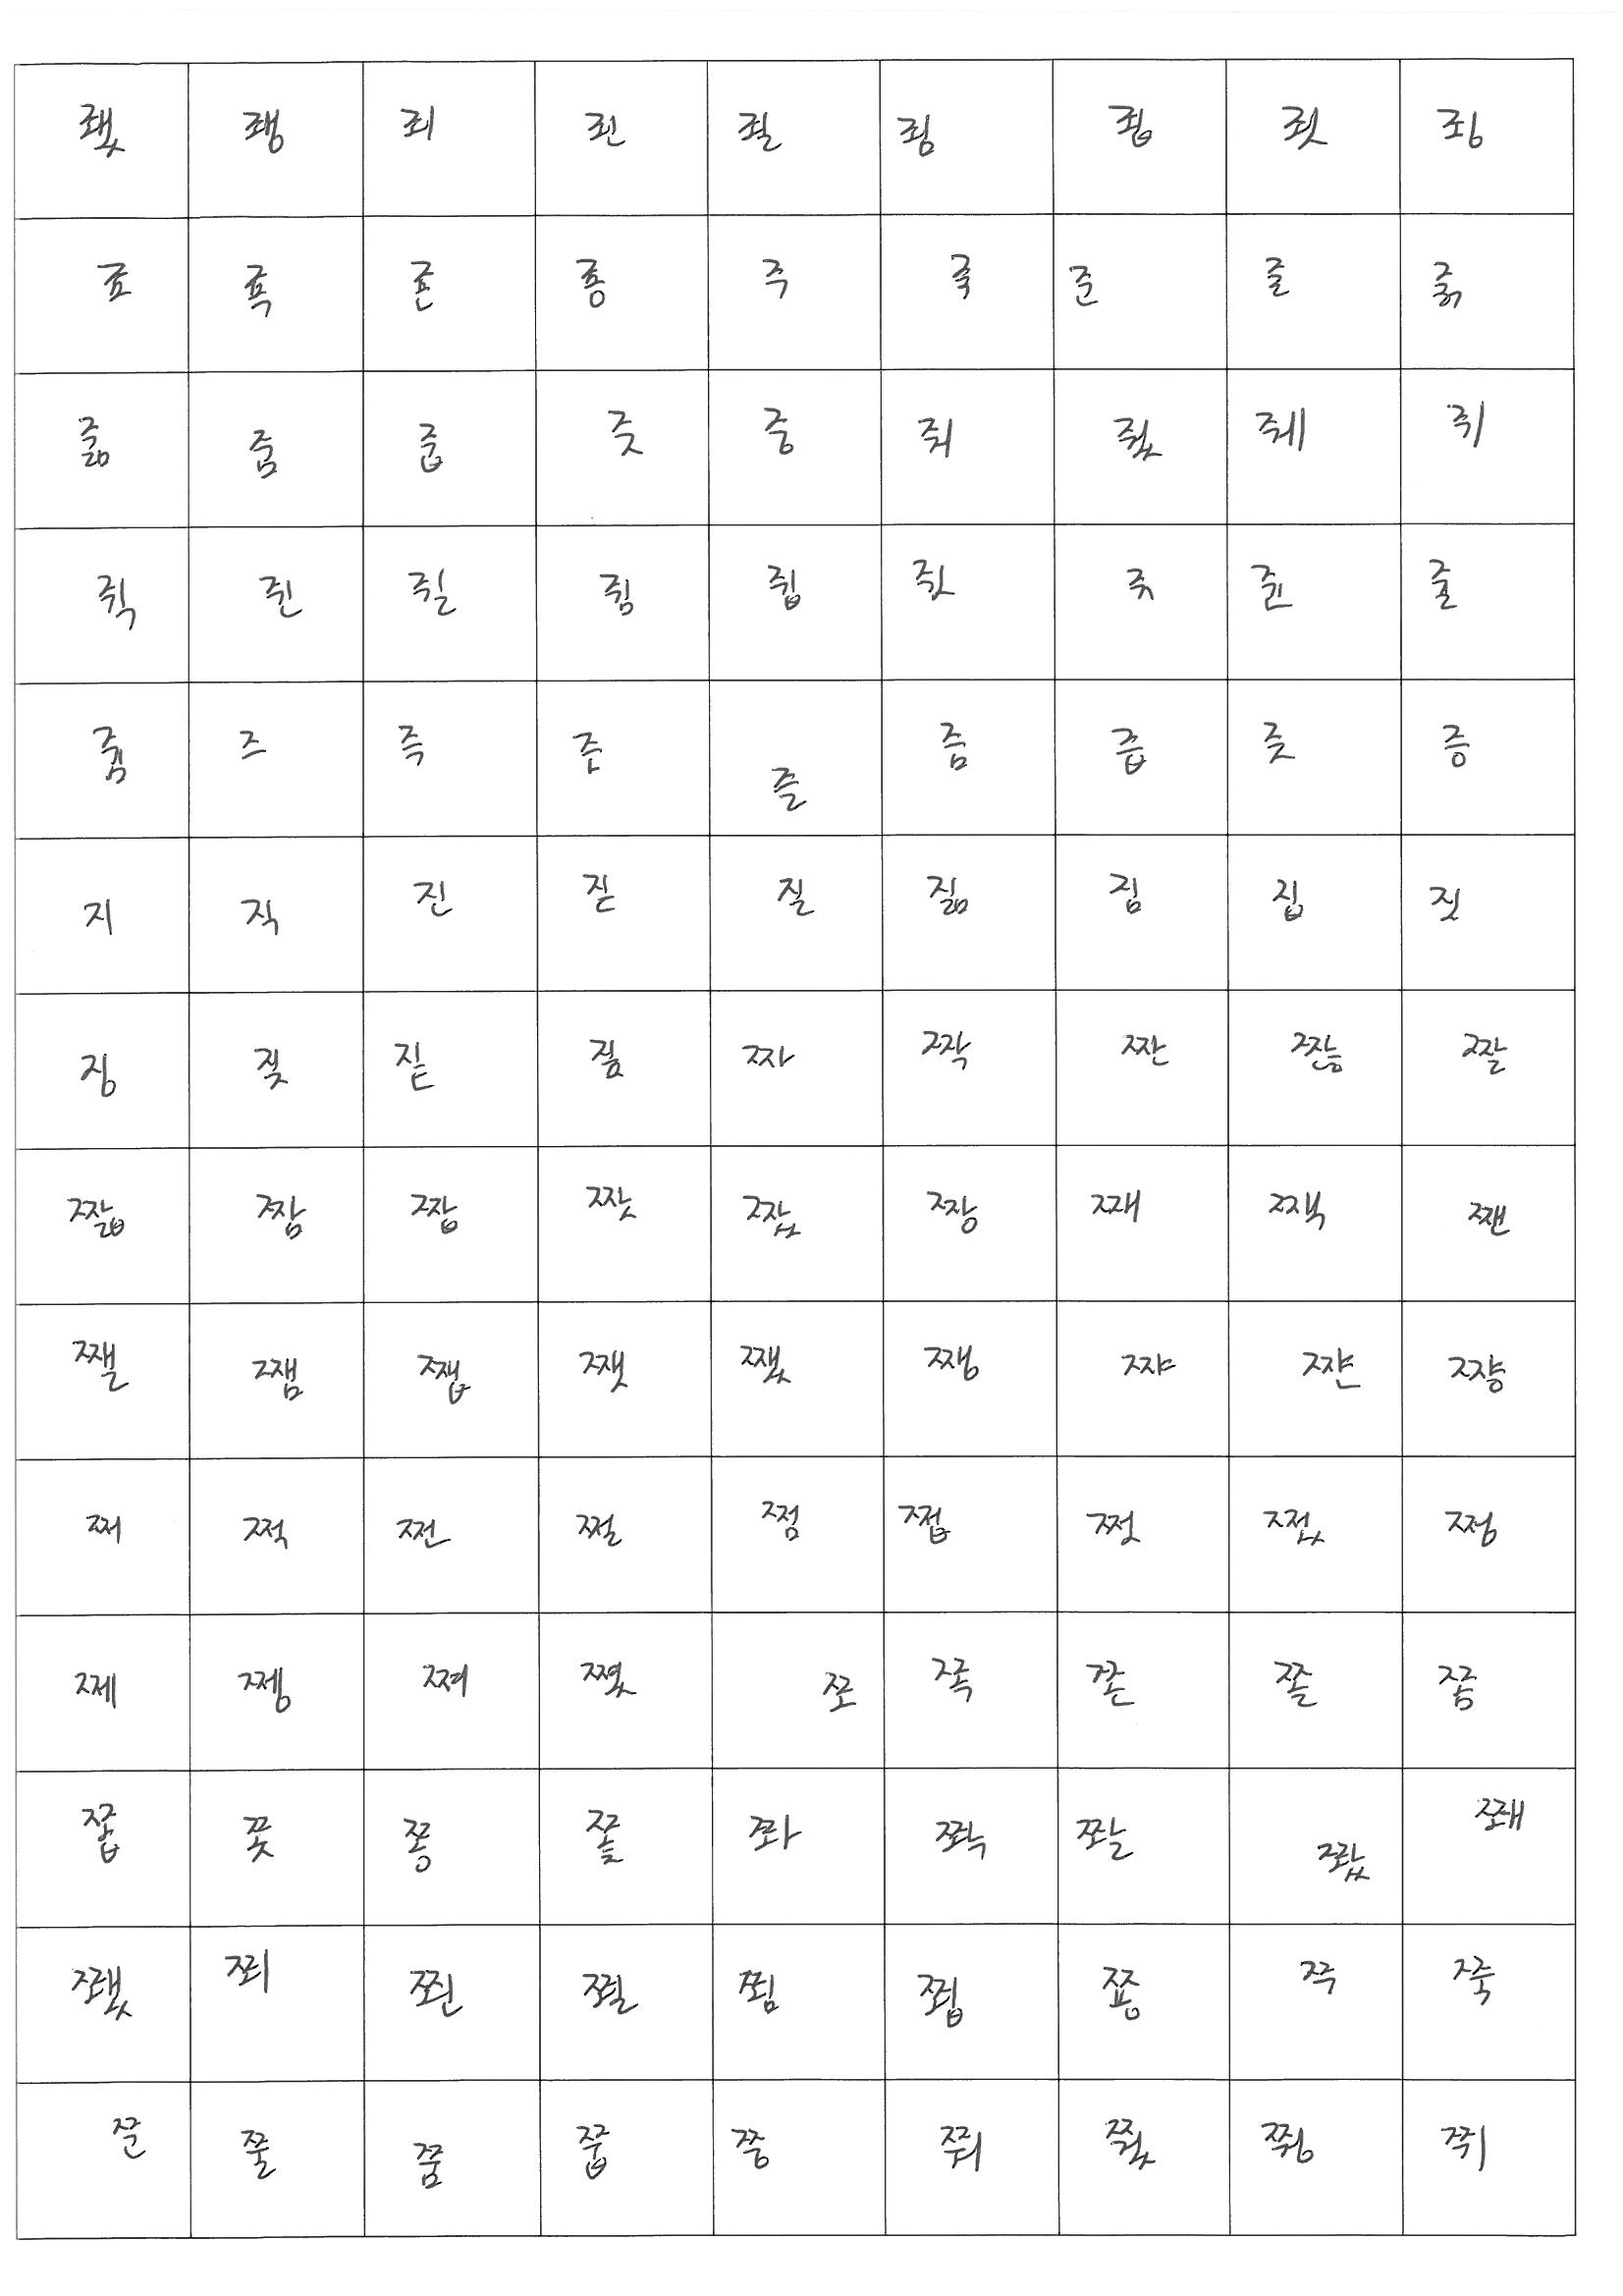 좼 좽 죄 죈 죌 죔 죕 죗 죙
죠 죡 죤 죵 주 죽 준 줄 줅
줆 줌 줍 줏 중 줘 줬 줴 쥐
쥑 쥔 쥘 쥠 쥡 쥣 쥬 쥰 쥴
쥼 즈 즉 즌 즐 즘 즙 즛 증
지 직 진 짇 질 짊 짐 집 짓
징 짖 짙 짚 짜 짝 짠 짢 짤
짧 짬 짭 짯 짰 짱 째 짹 짼
쨀 쨈 쨉 쨋 쨌 쨍 쨔 쨘 쨩
쩌 쩍 쩐 쩔 쩜 쩝 쩟 쩠 쩡
쩨 쩽 쪄 쪘 쪼 쪽 쫀 쫄 쫌
쫍 쫏 쫑 쫓 쫘 쫙 쫠 쫬 쫴
쬈 쬐 쬔 쬘 쬠 쬡 쭁 쭈 쭉
쭌 쭐 쭘 쭙 쭝 쭤 쭸 쭹 쮜